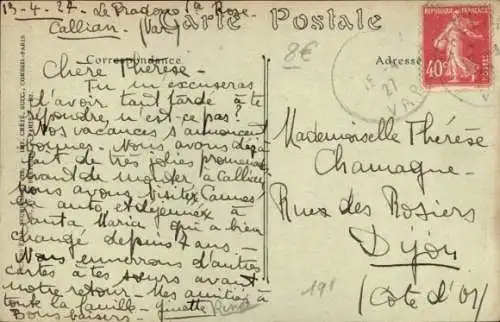 13-4-27 - Le Pradero la Rose
Callian (Var)
Carte Postale
8€
Correspondance
Adresse
RÉPUBLIQUE FRANÇAISE
POSTES
40c
27
VAR
Chère Thérèse -
Tu m'excuseras
d'avoir tant tardé à te
répondre, n'est-ce pas?
Nos vacances s'annoncent
bonnes. Nous avons déjà
fait de très jolies promenades
avant de monter à Callian
nous avons visité Cannes
en auto et déjeuné à
Santa Maria! qui a bien
changé depuis 7 ans -
Nous enverrons d'autres
cartes à tes sœurs avant
notre retour - Mes amitiés à
toute la famille - Ginette
Bons baisers -
Mademoiselle Thérèse
Chamagne -
Rue des Rosiers
Dijon
(Côte d'Or)
198